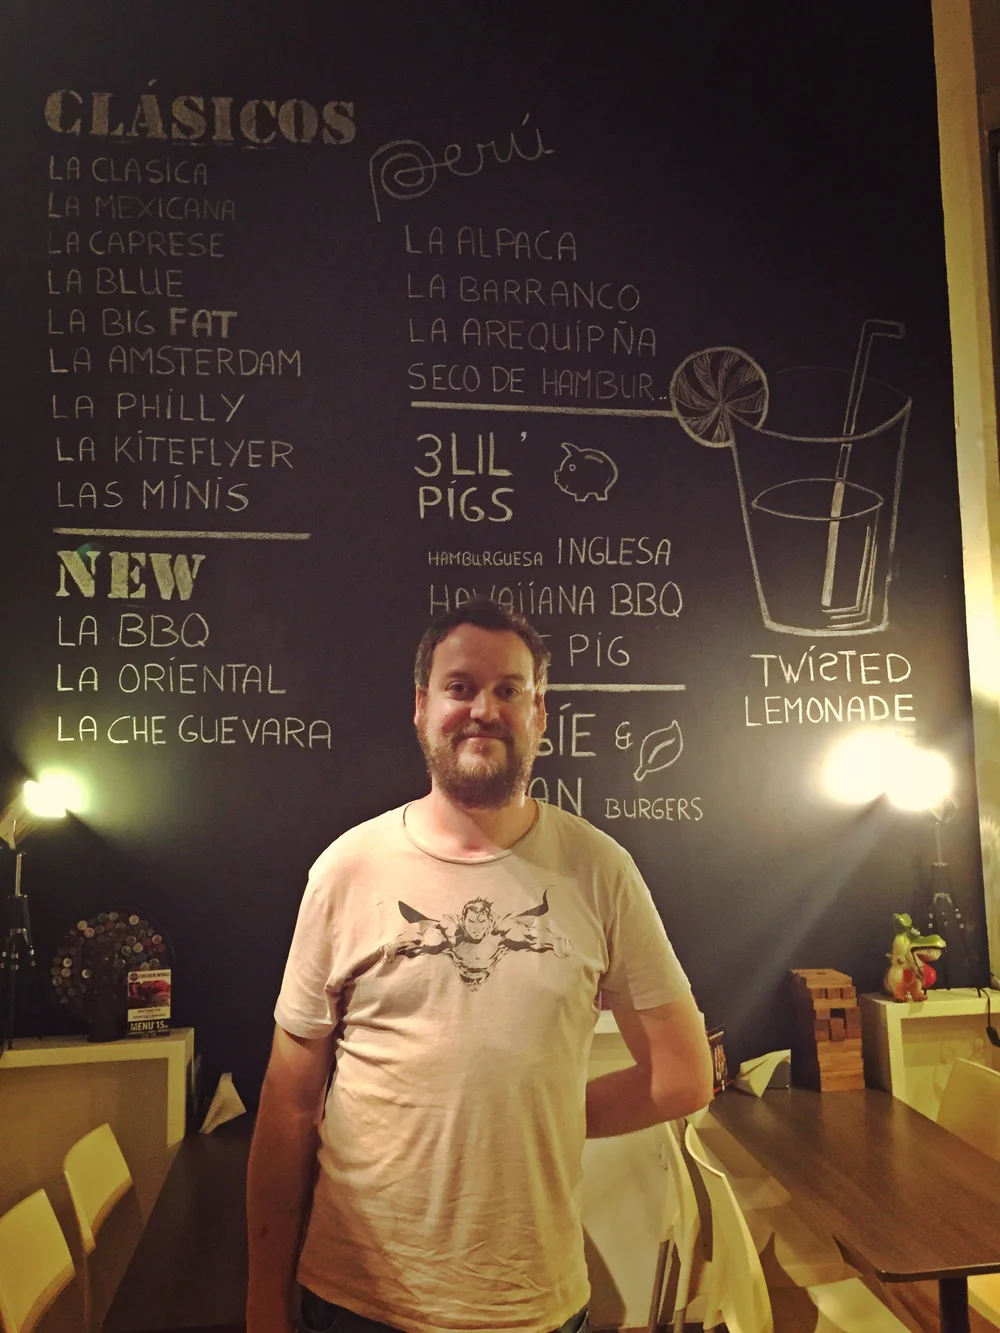 CLÁSICOS
LA CLASICA
LA MEXICANA
LA CAPRESE
LA BLUE
LA BIG FAT
LA AMSTERDAM
LA PHILLY
LA KITEFLYER
LAS MINIS
NEW
LA BBQ
LA ORIENTAL
LA CHE GUEVARA
Perú
LA ALPACA
LA BARRANCO
LA AREQUIPÑA
SECO DE HAMBUR..
3 LIL'
PIGS
HAMBURGUESA INGLESA
HAWAIIANA BBQ
PIG
&
BURGERS
TWISTED
LEMONADE
MENU 15